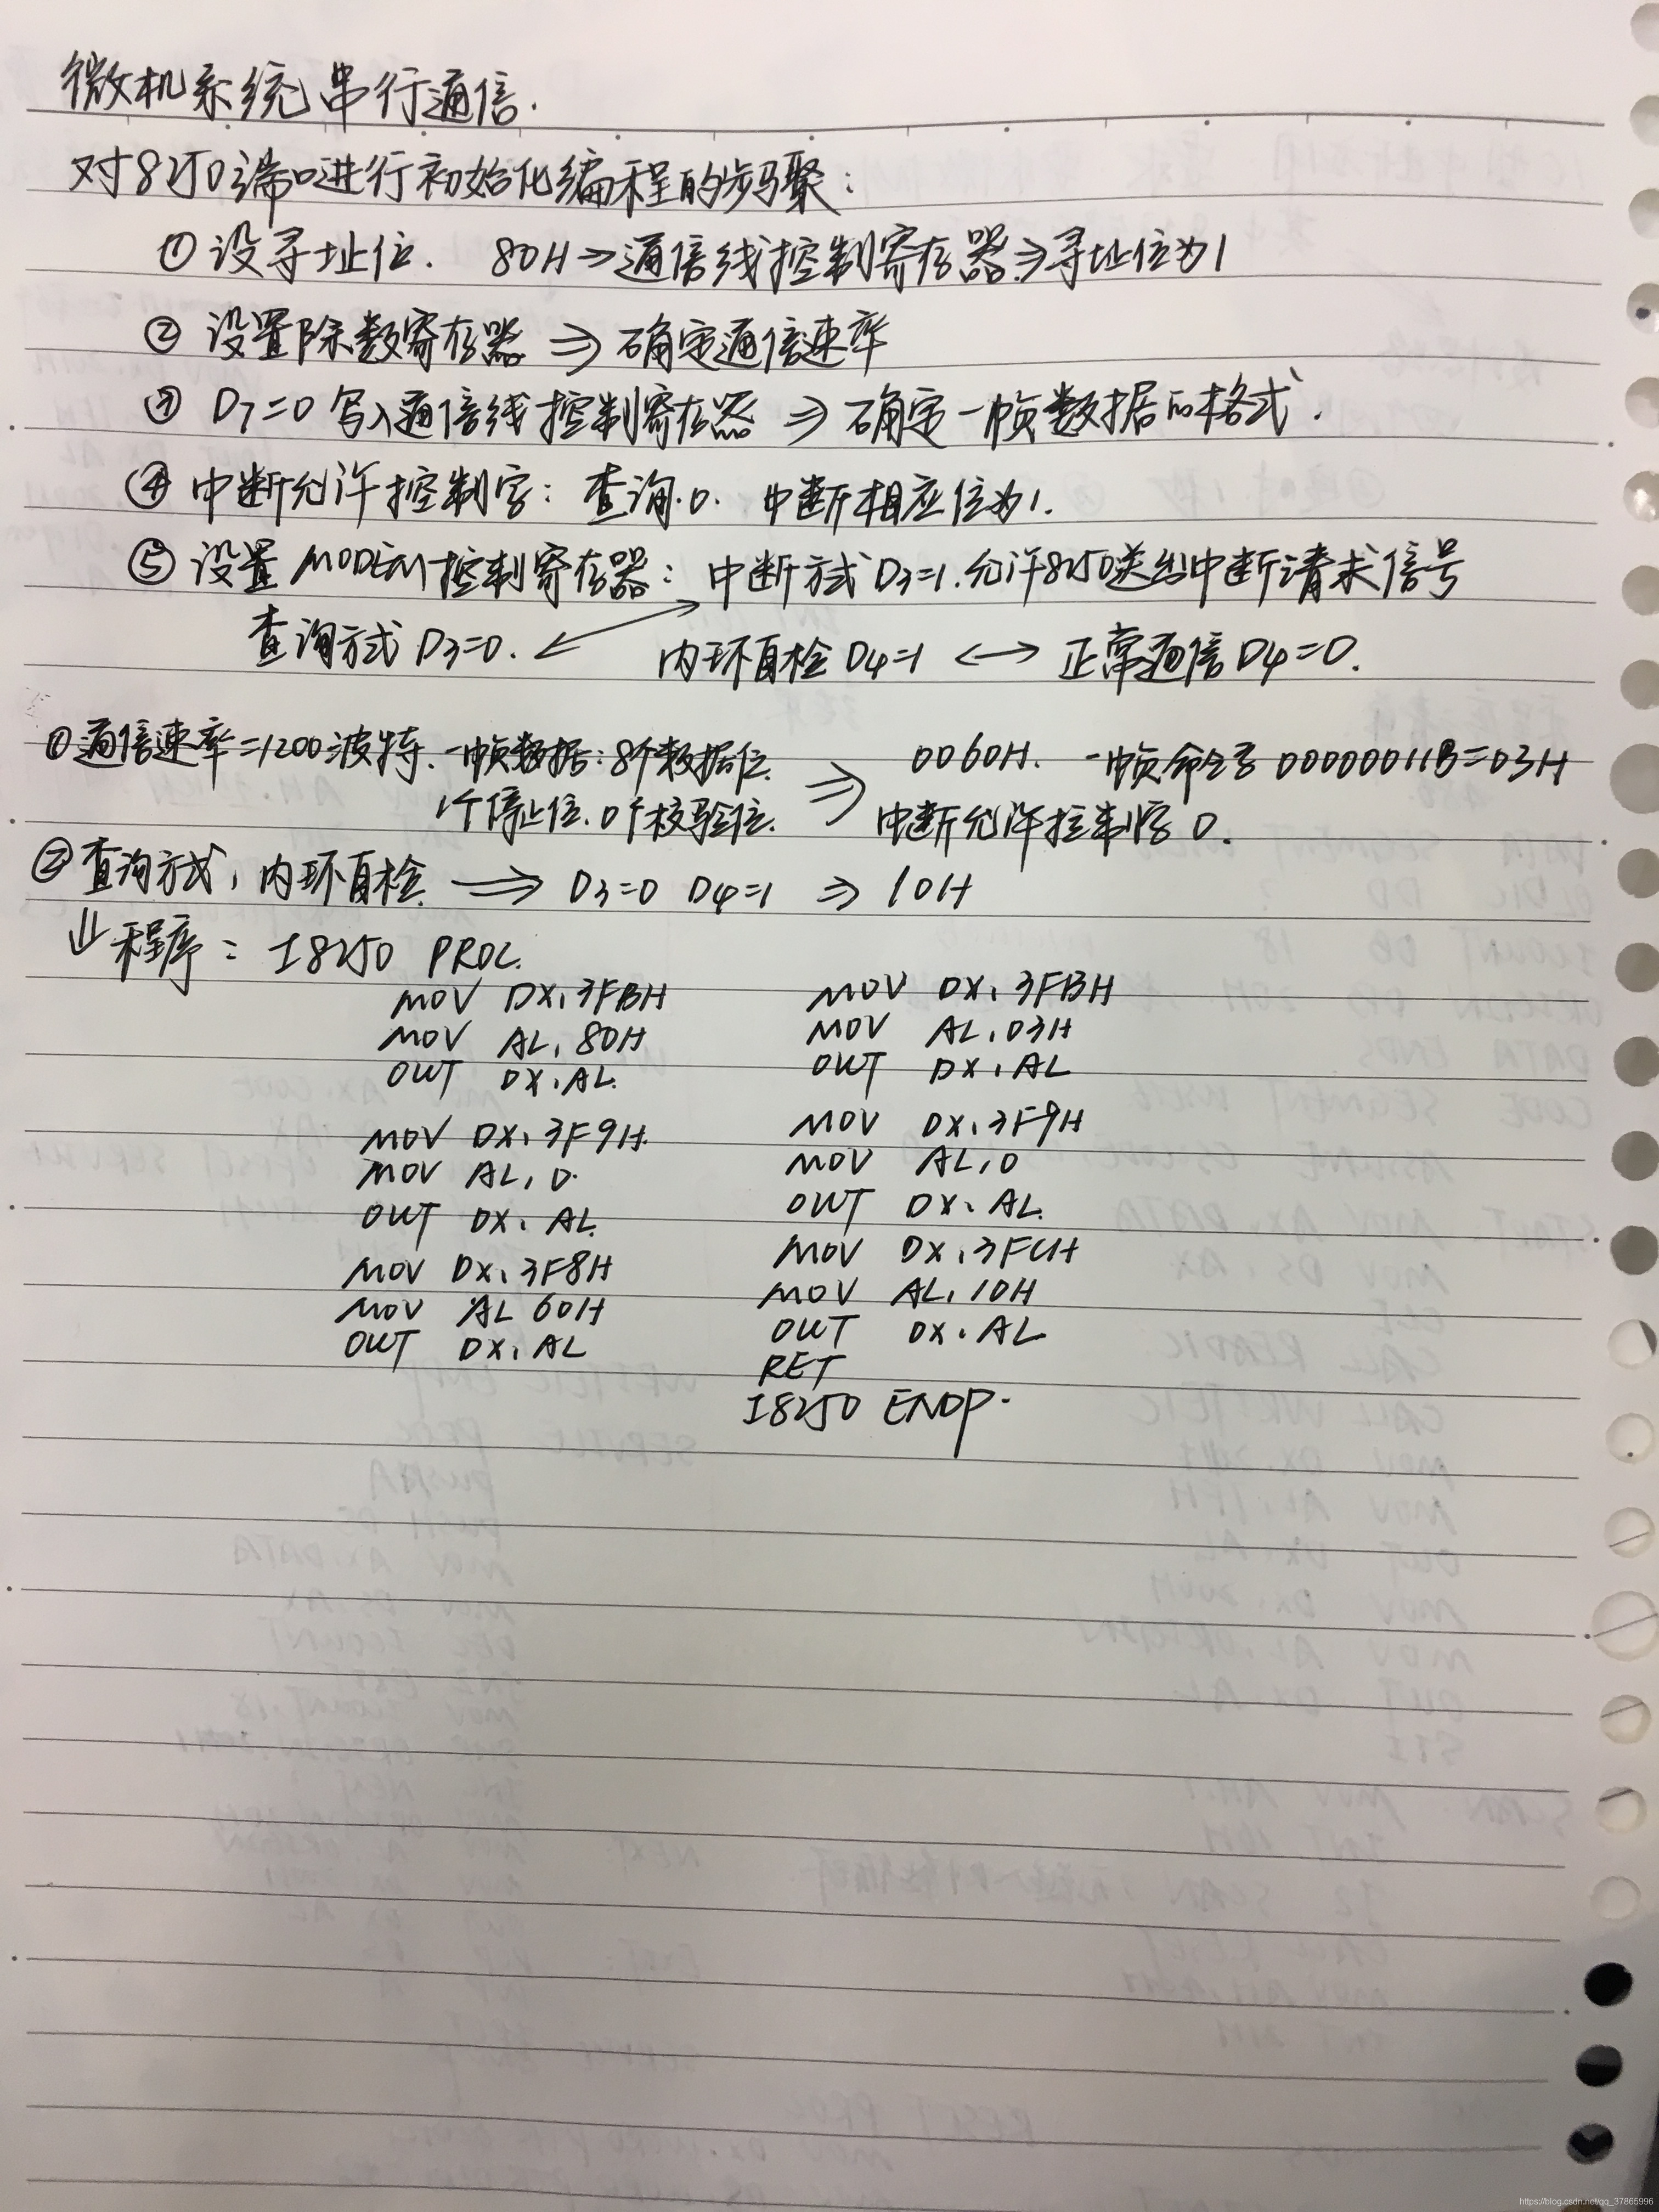 微机系统串行通信.
对8250端口进行初始化编程的步骤:
① 设寻址位. 80H→通信线控制寄存器⇒寻址位为1
② 设置除数寄存器 ⇒ 确定通信速率
③ D7=0 写入通信线控制寄存器 ⇒ 确定一帧数据的格式.
④ 中断允许控制字: 查询.0. 中断相应位为1.
⑤ 设置MODEM控制寄存器: 中断方式D3=1.允许8250送出中断请求信号
查询方式D3=0. 内环自检D4=1 ↔ 正常通信D4=0.
①通信速率=1200波特. 一帧数据:8个数据位. ⇒ 0060H. 一帧命令字 00000011B=03H
1个停止位.0个校验位. 中断允许控制字0.
②查询方式,内环自检 ⇒ D3=0 D4=1 ⇒ 10H
⇓程序: I8250 PROC.
MOV DX,3FBH
MOV AL,80H
OUT DX,AL.
MOV DX,3F9H.
MOV AL,0.
OUT DX,AL.
MOV DX,3F8H
MOV AL 60H
OUT DX,AL
MOV DX,3FBH
MOV AL,03H
OUT DX,AL
MOV DX,3F9H
MOV AL,0
OUT DX,AL.
MOV DX,3FCH
MOV AL,10H
OUT DX,AL
RET
I8250 ENDP.
https://blog.csdn.net/qq_37865996